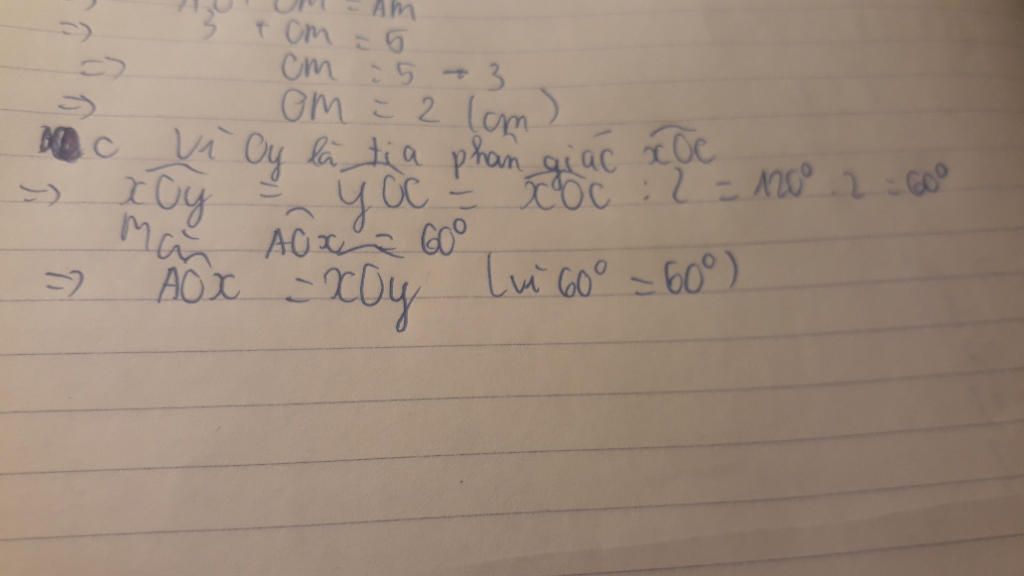 + OM = AM
=> 3 + OM = 5
=> OM = 5 - 3
=> OM = 2 (cm)
c Vì Oy là tia phân giác xOC
=> xOy = yOC = xOC : 2 = 120° . 2 = 60°
Mà AOx = 60°
=> AOx = xOy (vì 60° = 60°)